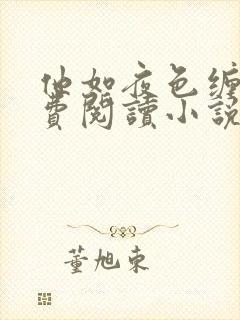 他如夜色缠
費閱讀小說
董旭東